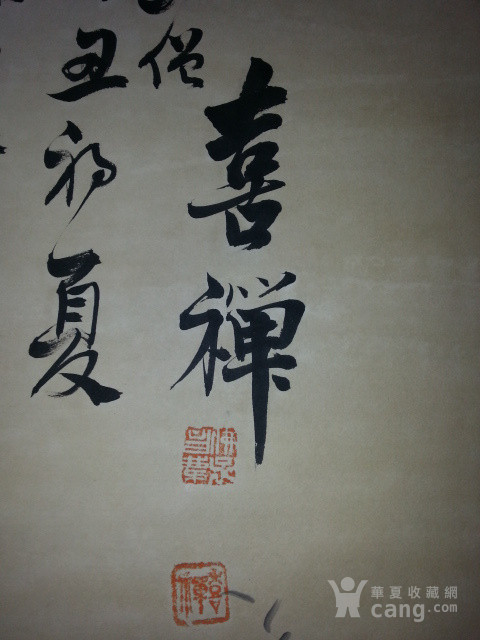 喜禅
僧
丑初夏
喜禅
華夏收藏網
cang.com